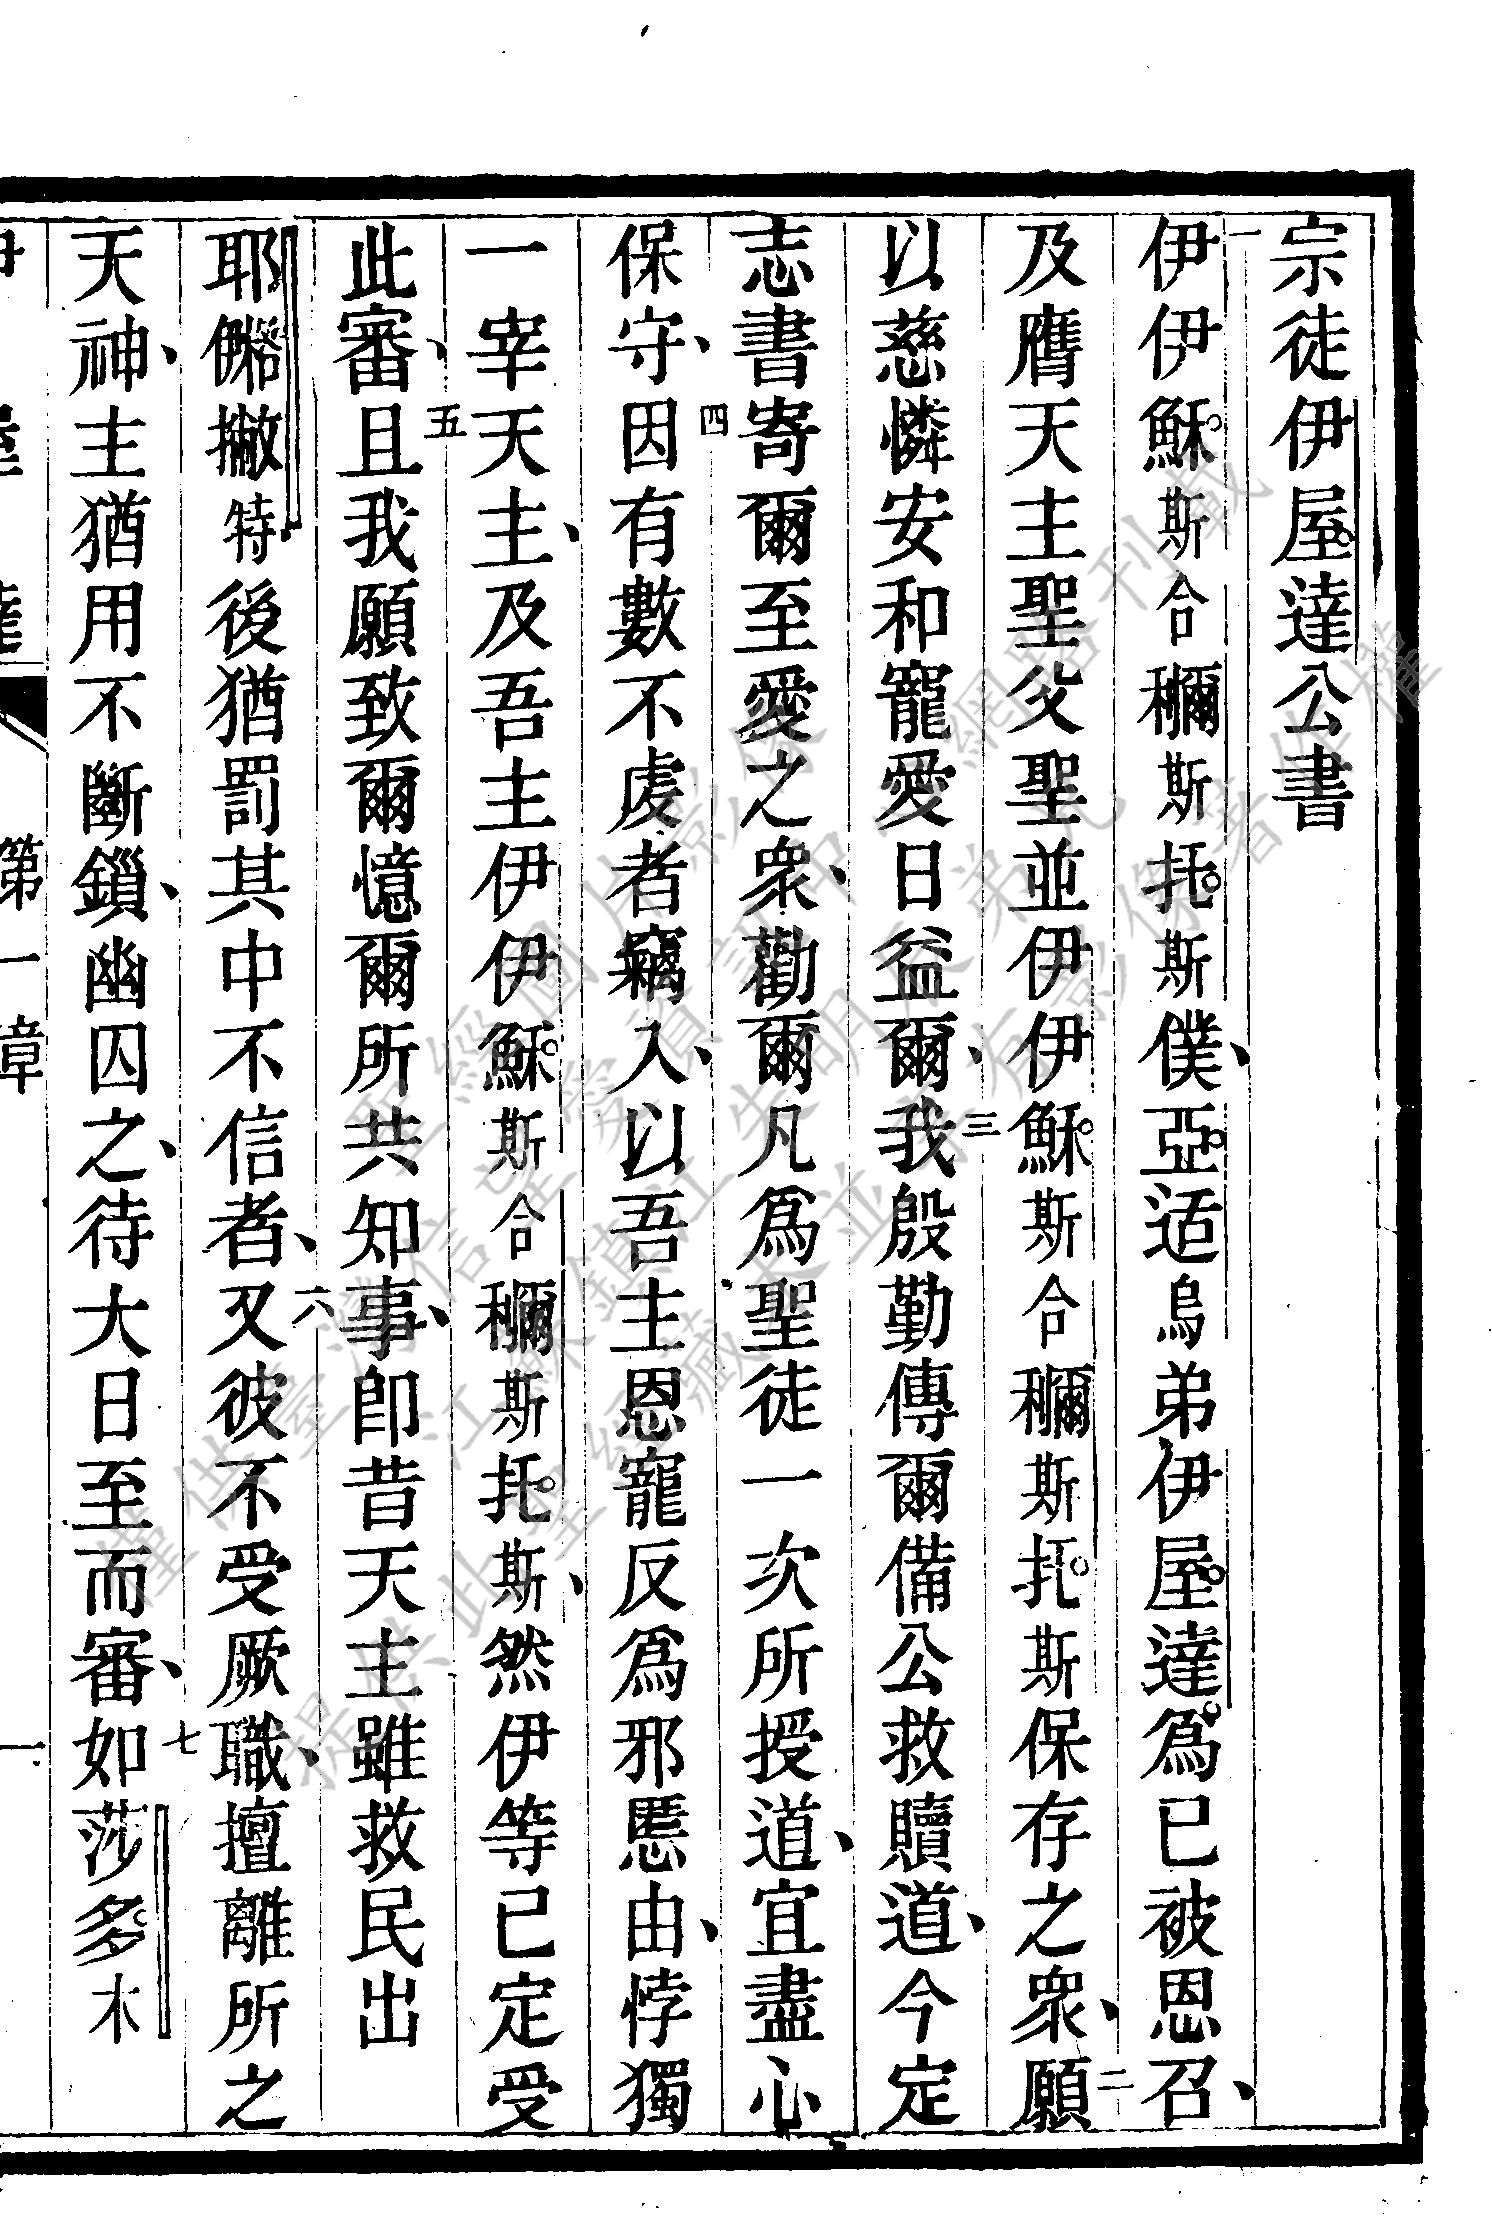 宗徒伊屋達公書
一伊伊穌斯合穪斯托斯僕、亞适烏弟伊屋達爲已被恩召、
及膺天主聖父聖並伊伊穌斯合穪斯托斯保存之衆、二願
以慈憐安和寵愛日益爾、三我殷勤傳爾備公救贖道、今定
志書寄爾至愛之衆、勸爾凡爲聖徒一次所授道、宜盡心
保守、四因有數不虔者竊入、以吾主恩寵反爲邪慝由、悖獨
一宰天主、及吾主伊伊穌斯合穪斯托斯、然伊等已定受
此審、五且我願致爾憶爾所共知事、卽昔天主雖救民出
耶撇特後猶罰其中不信者、六又彼不受厥職、擅離所之
天神、主猶用不斷鎖、幽囚之、待大日至而審、七如莎多木
伊屋達 第一章 一
僅供臺灣信望愛資訊中心網路刊載
提供此聖經藏本並享有影像著作權